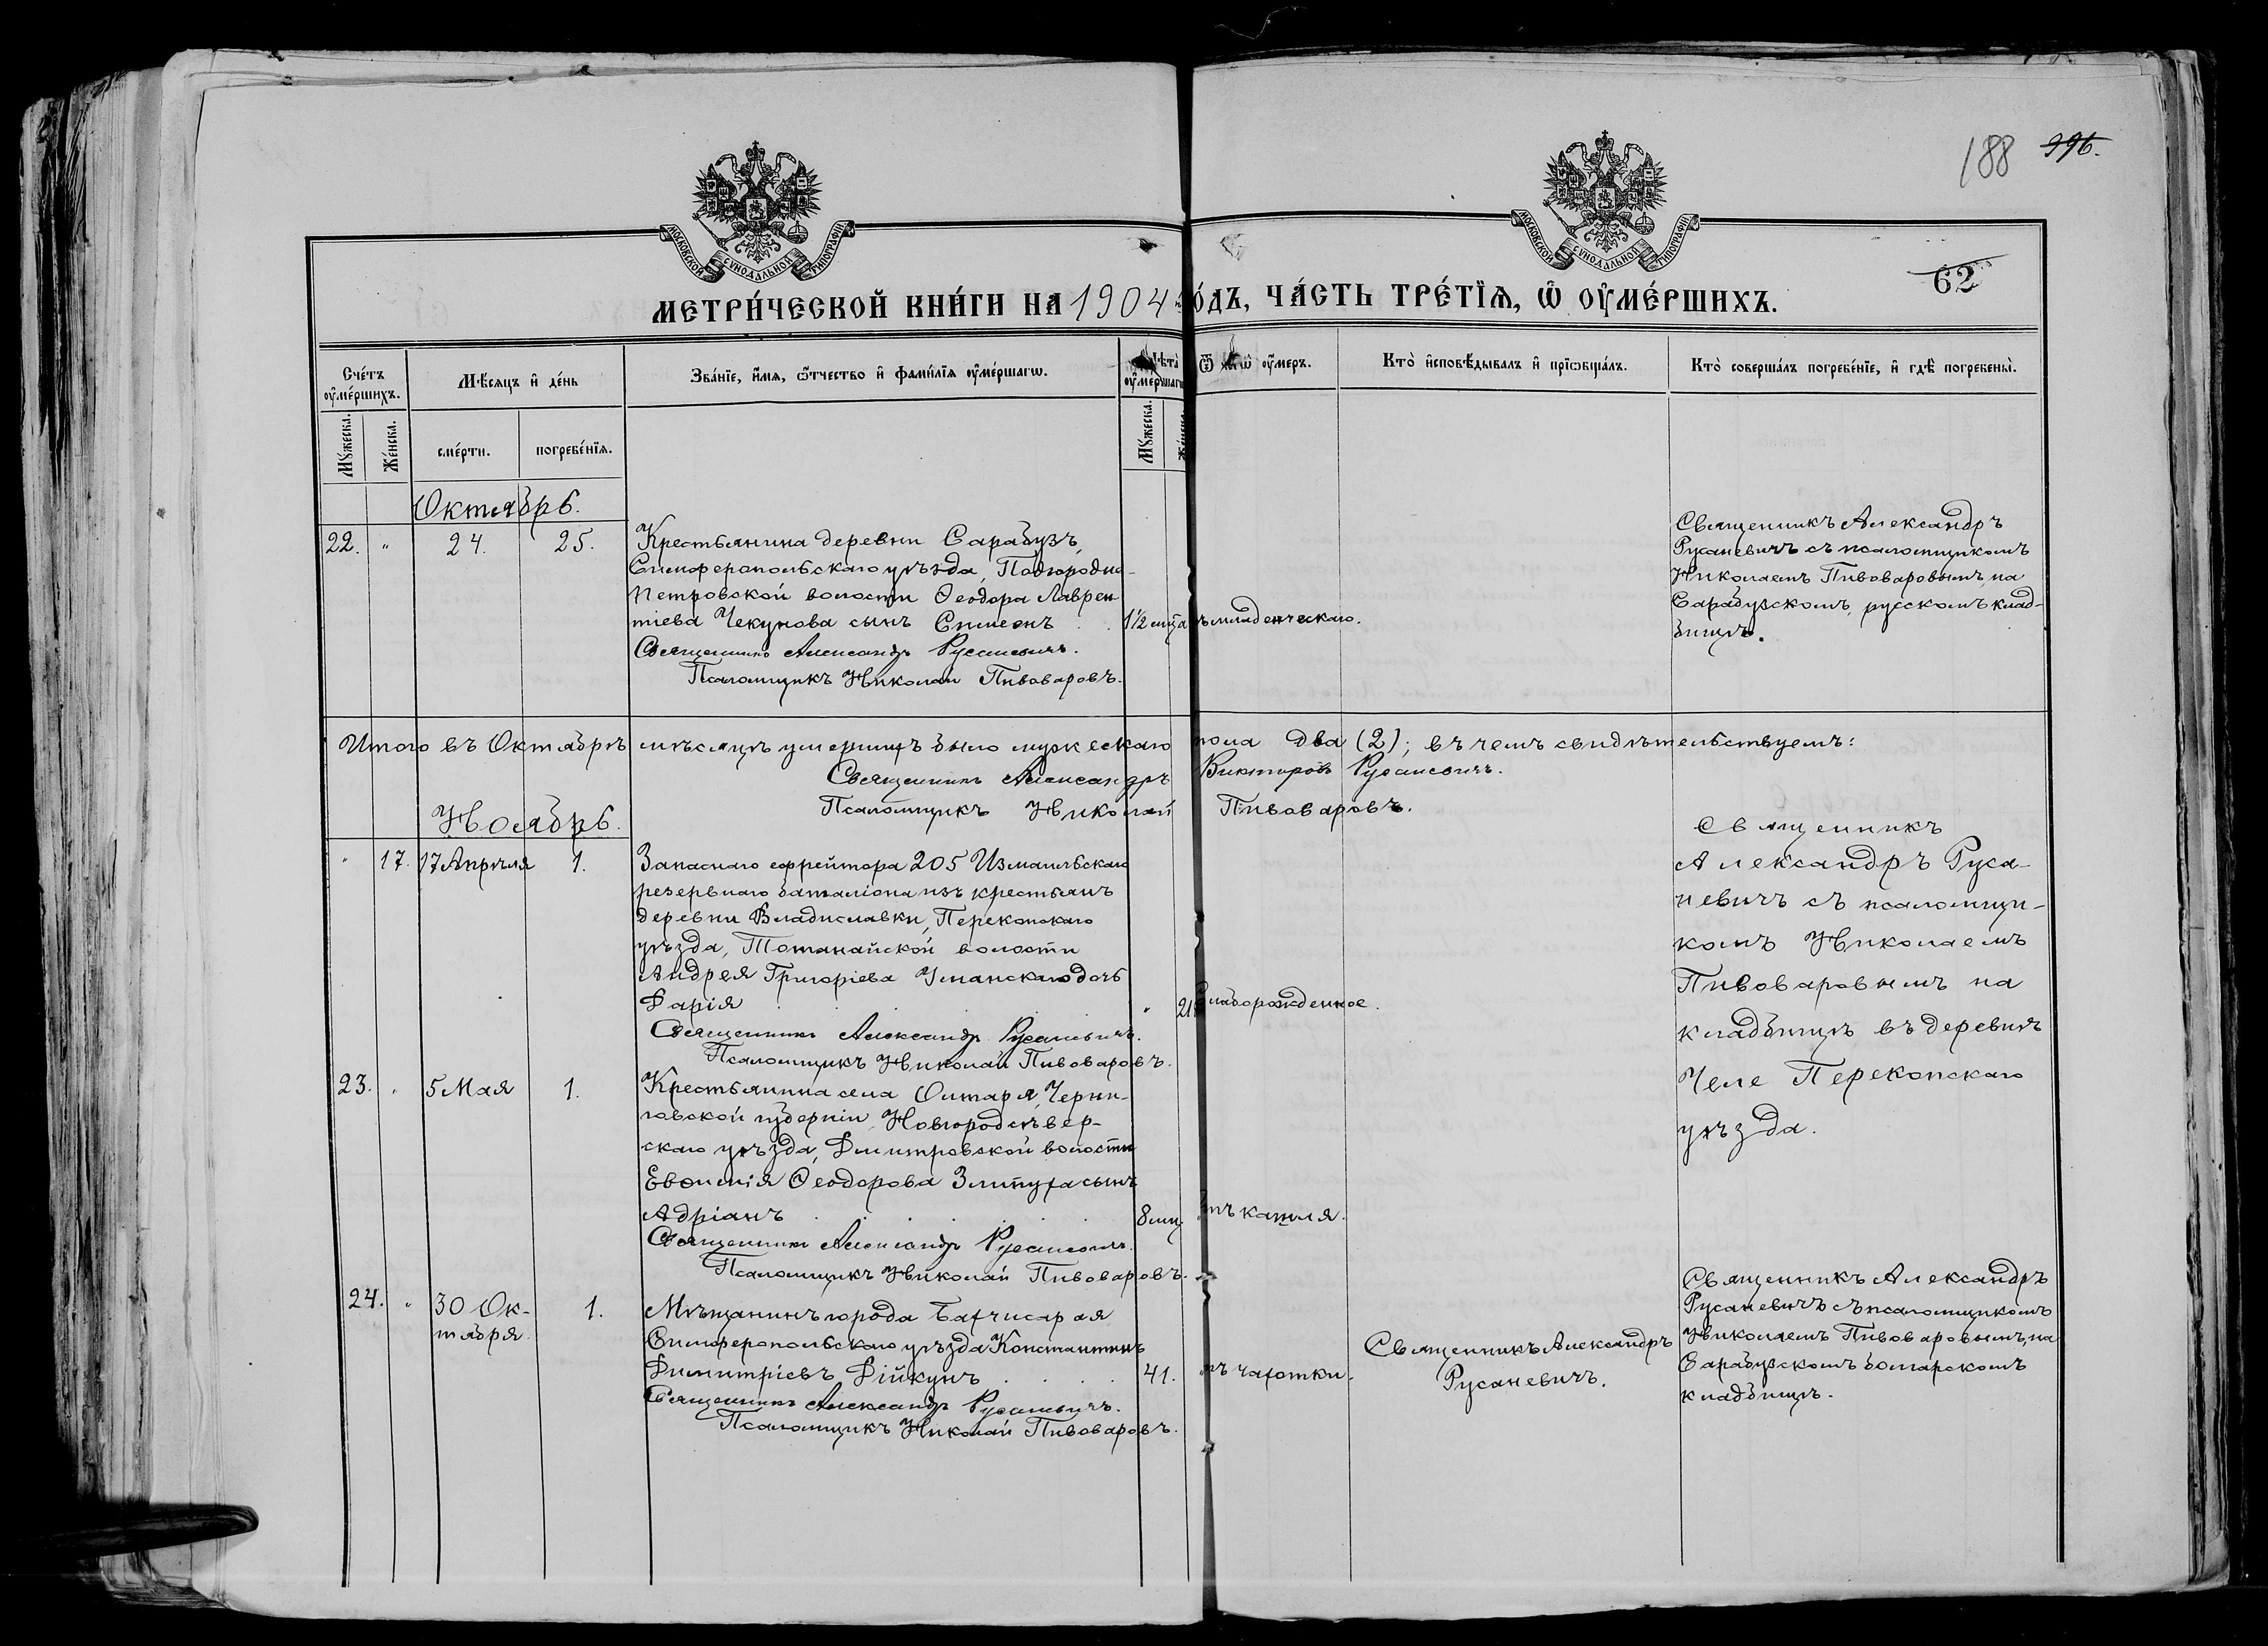 188 996.
МОСКОВСКОЙ СѴНОДАЛЬНОЙ ТИПОГРАФІИ
МОСКОВСКОЙ СѴНОДАЛЬНОЙ ТИПОГРАФІИ
62
МЕТРИ́ЧЕСКОЙ КНИ́ГИ НА 1904 ГО́ДЪ, ЧА́СТЬ ТРЕ́ТІѦ, Ѡ ОУ҆МЕ́РШИХЪ.
Сче́тъ оу҆ме́ршихъ.
Мѣ́сяцъ и҆ де́нь
Зва́нїе, и҆́мѧ, ѻ҆́тчество и҆ фами́лїѧ оу҆ме́ршагѡ.
Лѣ́та оу҆ме́ршагѡ
Ѿ чегѡ̀ оу҆́меръ.
Кто̀ и҆сповѣ́дывалъ и҆ прїѡбща́лъ.
Кто̀ соверша́лъ погребе́нїе, и҆ гдѣ̀ погребены̀.
Мꙋ́жеска.
Же́нска.
сме́рти.
погребе́нїѧ.
Мꙋ́жеска.
Же́нска.
Октябрь.
22. " 24. 25.
Крестьянина деревни Сарабузъ,
Симферопольскаго уѣзда, Подгородне-
Петровской волости Ѳеодора Лаврен
тіева Чекунова сынъ Симеонъ . . 1½ мца
отъ младенческаго.
Священникъ Александръ Русаневичъ.
Псаломщикъ Николай Пивоваровъ.
Священникъ Александръ
Русаневичъ съ псаломщикомъ
Николаемъ Пивоваровымъ, на
Сарабузскомъ русскомъ клад-
бищѣ.
Итого въ Октябрѣ мѣсяцѣ умершихъ было мужескаго пола два (2); въ чемъ свидѣтельствуемъ:
Священникъ Александръ Викторовъ Русаневичъ.
Псаломщикъ Николай Пивоваровъ.
Ноябрь.
" 17. 17 Апрѣля 1.
Запаснаго ефрейтора 205 Измаильскаго
резервнаго баталіона изъ крестьянъ
деревни Владиславки, Перекопскаго
уѣзда, Тотанайской волости
Андрея Григоріева Уманскаго дочь
Дарія . . . . " 21
слаборожденное.
Священникъ Александръ Русаневичъ.
Псаломщикъ Николай Пивоваровъ.
Священникъ
Александръ Руса-
невичъ съ псаломщи-
комъ Николаемъ
Пивоваровымъ на
кладбищѣ въ деревнѣ
Челе Перекопскаго
уѣзда.
23. " 5 Мая 1.
Крестьянина села Олтаря, Черни-
говской губерніи, Новгородсѣвер-
скаго уѣзда, Дмитровской волости
Евѳимія Ѳеодорова сынъ
Адріанъ . . . . 8 мц
отъ кашля.
Священникъ Александръ Русаневичъ.
Псаломщикъ Николай Пивоваровъ.
24. " 30 Ок-
тября. 1.
Мѣщанинъ города Бахчисарая
Симферопольскаго уѣзда Константинъ
Димитріевъ Дійкунъ . . . . 41.
отъ чахотки.
Священникъ Александръ Русаневичъ.
Псаломщикъ Николай Пивоваровъ.
Священникъ Александръ
Русаневичъ.
Священникъ Александръ
Русаневичъ съ псаломщикомъ
Николаемъ Пивоваровымъ, на
Сарабузскомъ болгарскомъ
кладбищѣ.